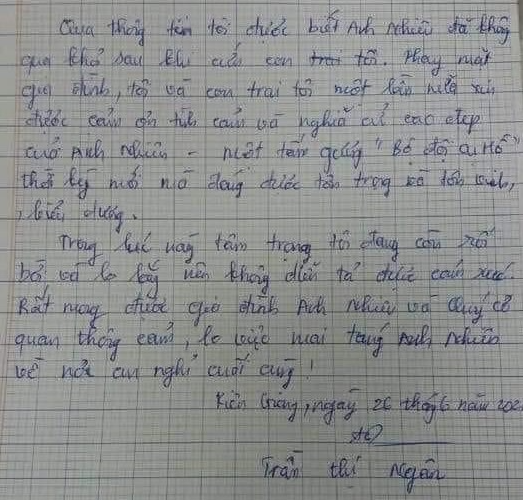 Qua thông tin tôi được biết Anh Nhiên đã không
qua khỏi sau khi cứu con trai tôi. Thay mặt
gia đình, tôi và con trai tôi một lần nữa xin
được cảm ơn tình cảm và nghĩa cử cao đẹp
của Anh Nhiên - một tấm gương "Bộ đội cụ Hồ"
thời kỳ mới nó đáng được tôn trọng và tôn vinh,
, biểu dương.
Trong lúc này tâm trạng tôi đang còn rối
bời và lo lắng nên không diễn tả được cảm xúc.
Rất mong được gia đình Anh Nhiên và Quý cơ
quan thông cảm, lo việc mai táng Anh Nhiên
về nơi an nghỉ cuối cùng!
Kiên Giang, ngày 26 tháng 6 năm 202
Trần thị Ngân